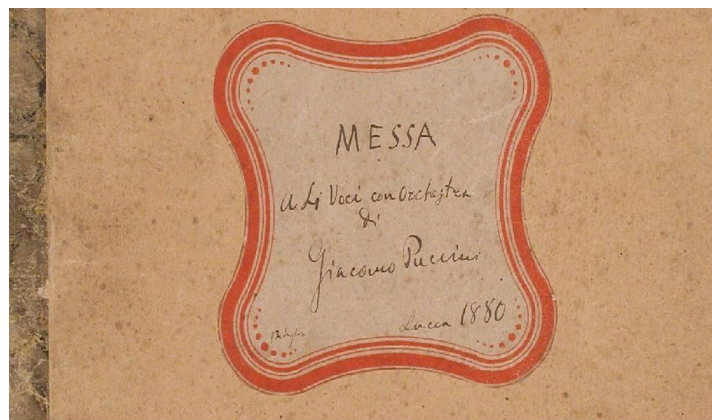 MESSA
a 4 Voci con orchestra
di
Giacomo Puccini
Lucca 1880